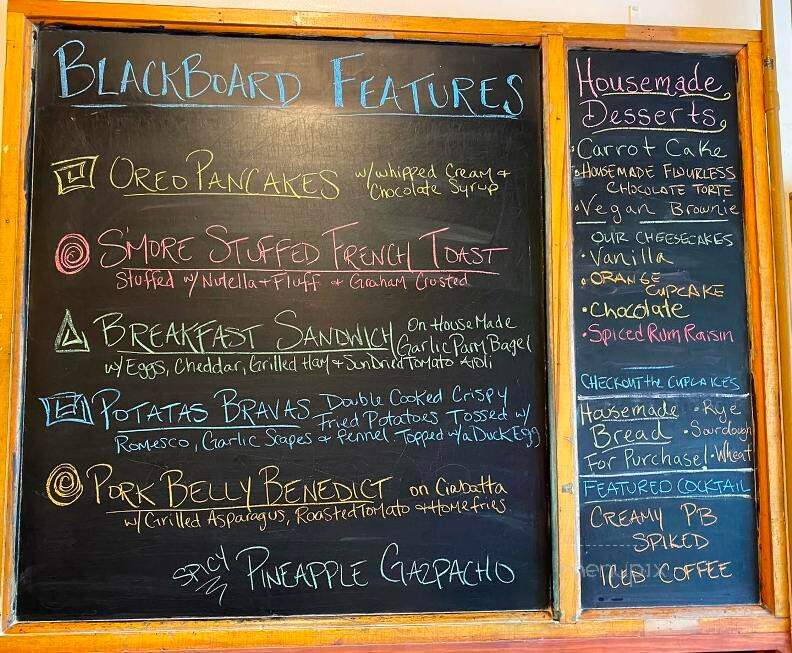 BLACKBOARD FEATURES
OREO PANCAKES w/whipped Cream +
Chocolate Syrup
S'MORE STUFFED FRENCH TOAST
Stuffed w/Nutella + Fluff + Graham Crusted
BREAKFAST SANDWICH On HouseMade
Garlic Parm Bagel
w/Eggs, Cheddar, Grilled Ham + SunDried Tomato Aioli
POTATAS BRAVAS Double Cooked Crispy
Fried Potatoes Tossed w/
Romesco, Garlic Scapes + Fennel Topped w/a Duck Egg
PORK BELLY BENEDICT on Ciabatta
w/Grilled Asparagus, Roasted Tomato + Homefries
SPICY PINEAPPLE GAZPACHO
Housemade
Desserts
•Carrot Cake
•HOUSEMADE FLOURLESS
CHOCOLATE TORTE
•Vegan Brownie
OUR CHEESECAKES
•Vanilla
•ORANGE
CUPCAKE
•Chocolate
•Spiced Rum Raisin
CHECKOUT the CUPCAKES
Housemade •Rye
Bread •Sourdough
For Purchase! •Wheat
FEATURED COCKTAIL
CREAMY PB
SPIKED
ICED COFFEE